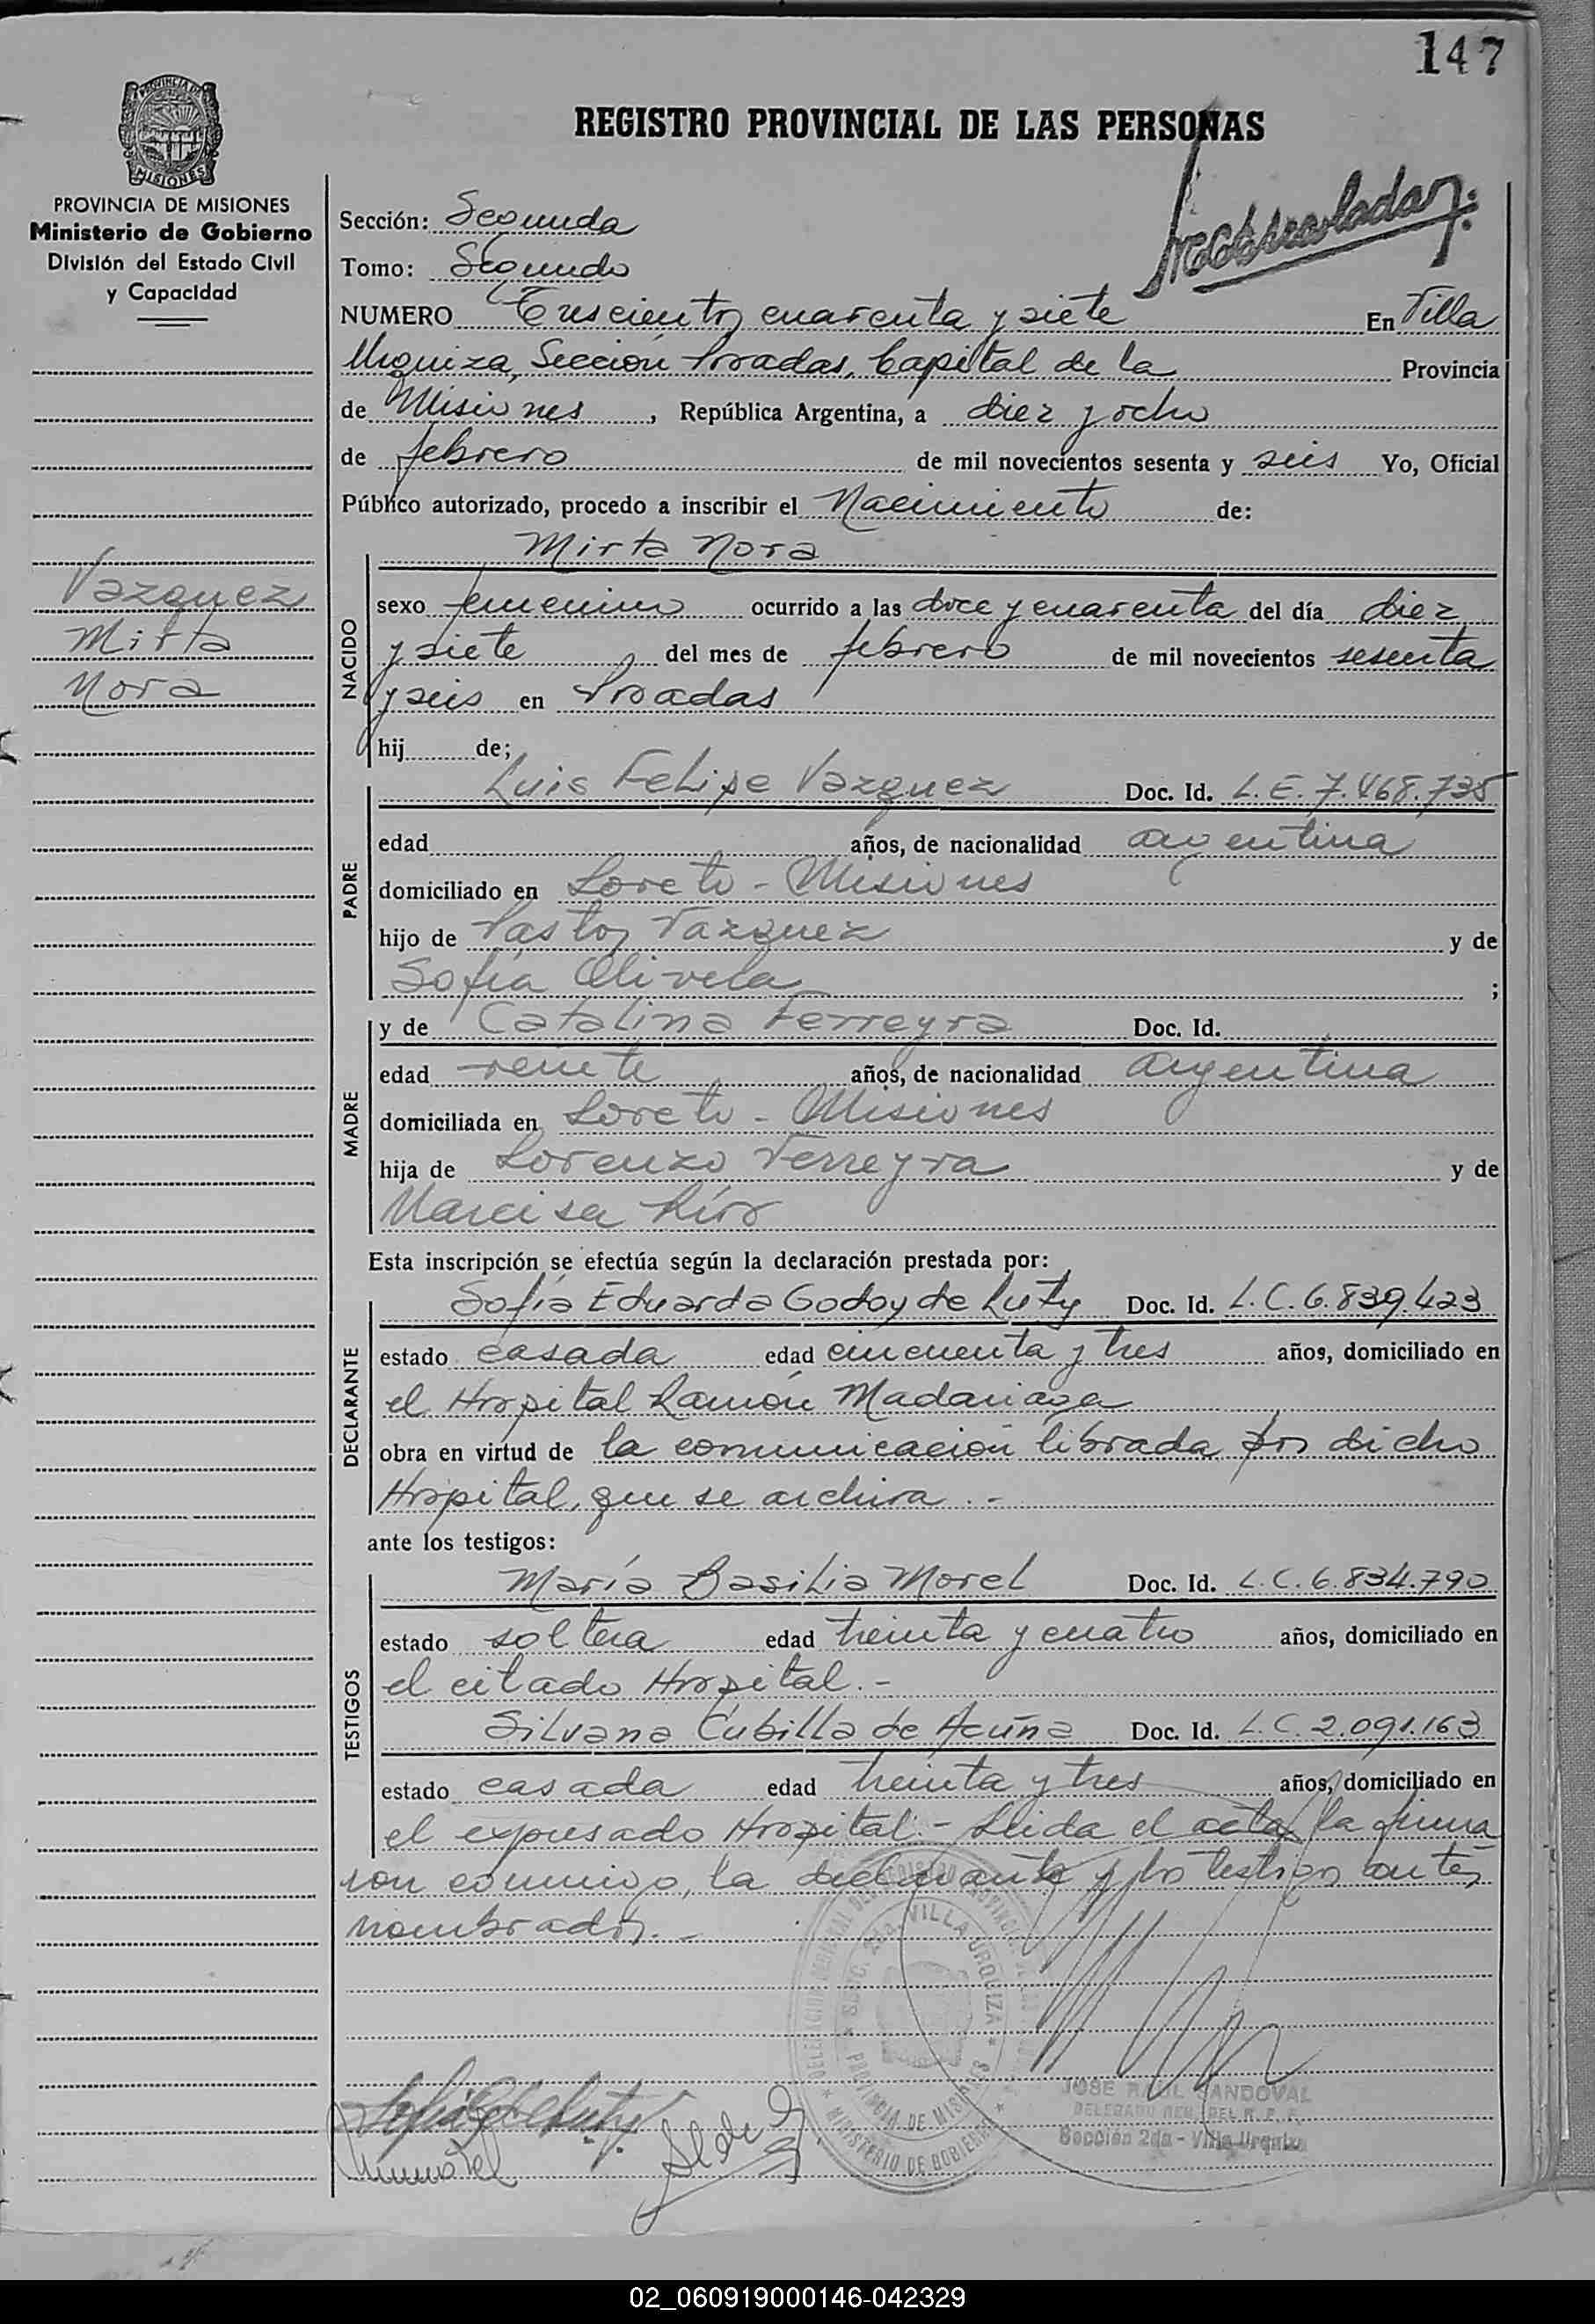 147
REGISTRO PROVINCIAL DE LAS PERSONAS
PROVINCIA DE MISIONES
MISIONES
PROVINCIA DE MISIONES
Ministerio de Gobierno
División del Estado Civil
y Capacidad
Sección: Segunda
Tomo: Segundo
NUMERO Trescientos cuarenta y siete En Villa
Urquiza, Sección Posadas, Capital de la Provincia
de Misiones, República Argentina, a diez y ocho
de febrero de mil novecientos sesenta y seis Yo, Oficial
Público autorizado, procedo a inscribir el Nacimiento de:
Mirta Nora
Vazquez
Mirta
Nora
NACIDO
sexo femenino ocurrido a las doce y cuarenta del día diez
y siete del mes de febrero de mil novecientos sesenta
y seis en Posadas
hij de;
PADRE
Luis Felipe Vazquez Doc. Id. L.E. 7.468.735
edad años, de nacionalidad argentina
domiciliado en Loreto - Misiones
hijo de Pastor Vazquez y de
Sofía Olivela ;
MADRE
y de Catalina Ferreyra Doc. Id.
edad veinte años, de nacionalidad argentina
domiciliada en Loreto - Misiones
hija de Lorenzo Ferreyra y de
Narcisa Ríos
Esta inscripción se efectúa según la declaración prestada por:
DECLARANTE
Sofía Eduarda Godoy de Luty Doc. Id. L.C. 6.839.423
estado casada edad cincuenta y tres años, domiciliado en
el Hospital Ramón Madariaga
obra en virtud de la comunicación librada por dicho
Hospital, que se archiva.-
ante los testigos:
TESTIGOS
María Basilia Morel Doc. Id. L.C. 6.834.790
estado soltera edad treinta y cuatro años, domiciliado en
el citado Hospital.-
Silvana Cubilla de Acuña Doc. Id. L.C. 2.091.163
estado casada edad treinta y tres años, domiciliado en
el expresado Hospital.- Leida el acta, la firma
ron conmigo, la declarante y los testigos antes
nombrados.-
SECC. 2da. VILLA URQUIZA
PROVINCIA DE MISIONES
MINISTERIO DE GOBIERNO
JOSE RAUL SANDOVAL
Sección 2da - Villa Urquiza
02_060919000146-042329